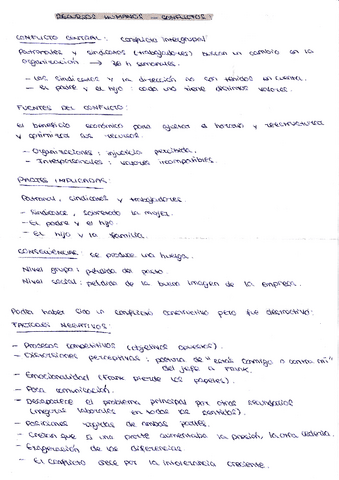 RECURSOS HUMANOS - CONFLICTOS:
CONFLICTO CENTRAL: Conflicto intergrupal
Patronales y sindicatos (trabajadores) buscan un cambio en la
organización → 35 h semanales.
- Los sindicatos y la dirección no son tenidos en cuenta.
- El padre y el hijo: cada uno tiene distintos valores.
FUENTES DEL CONFLICTO:
el beneficio económico para ajustar el horario y reestructurar
y optimizar sus recursos.
- Organizaciones: injusticia percibida.
- Interpersonales: valores incompatibles.
PARTES IMPLICADAS:
Patronal, sindicatos y trabajadores.
- Sindicatos, sobretodo la mujer.
- El padre y el hijo.
- El hijo y la familia.
CONSECUENCIAS: se produce una huelga.
Nivel grupal: pérdida de
Nivel social: pérdida de la buena imagen de la empresa.
Podía haber sido un conflicto constructivo pero fue destructivo:
FACTORES NEGATIVOS:
- Procesos competitivos (objetivos opuestos).
- Distorsiones perceptivas: postura de "estás conmigo o contra mí"
del jefe a Frank.
- Emocionalidad (Frank pierde los papeles).
- Poca comunicación.
- Desaparece el problema principal por otros secundarios
laborales en todos los sentidos).
- Posiciones rígidas de ambas partes.
- Creían que si una parte aumentaba la presión, la otra cedería.
- Exageración de las diferencias.
- El conflicto crece por la intolerancia creciente.